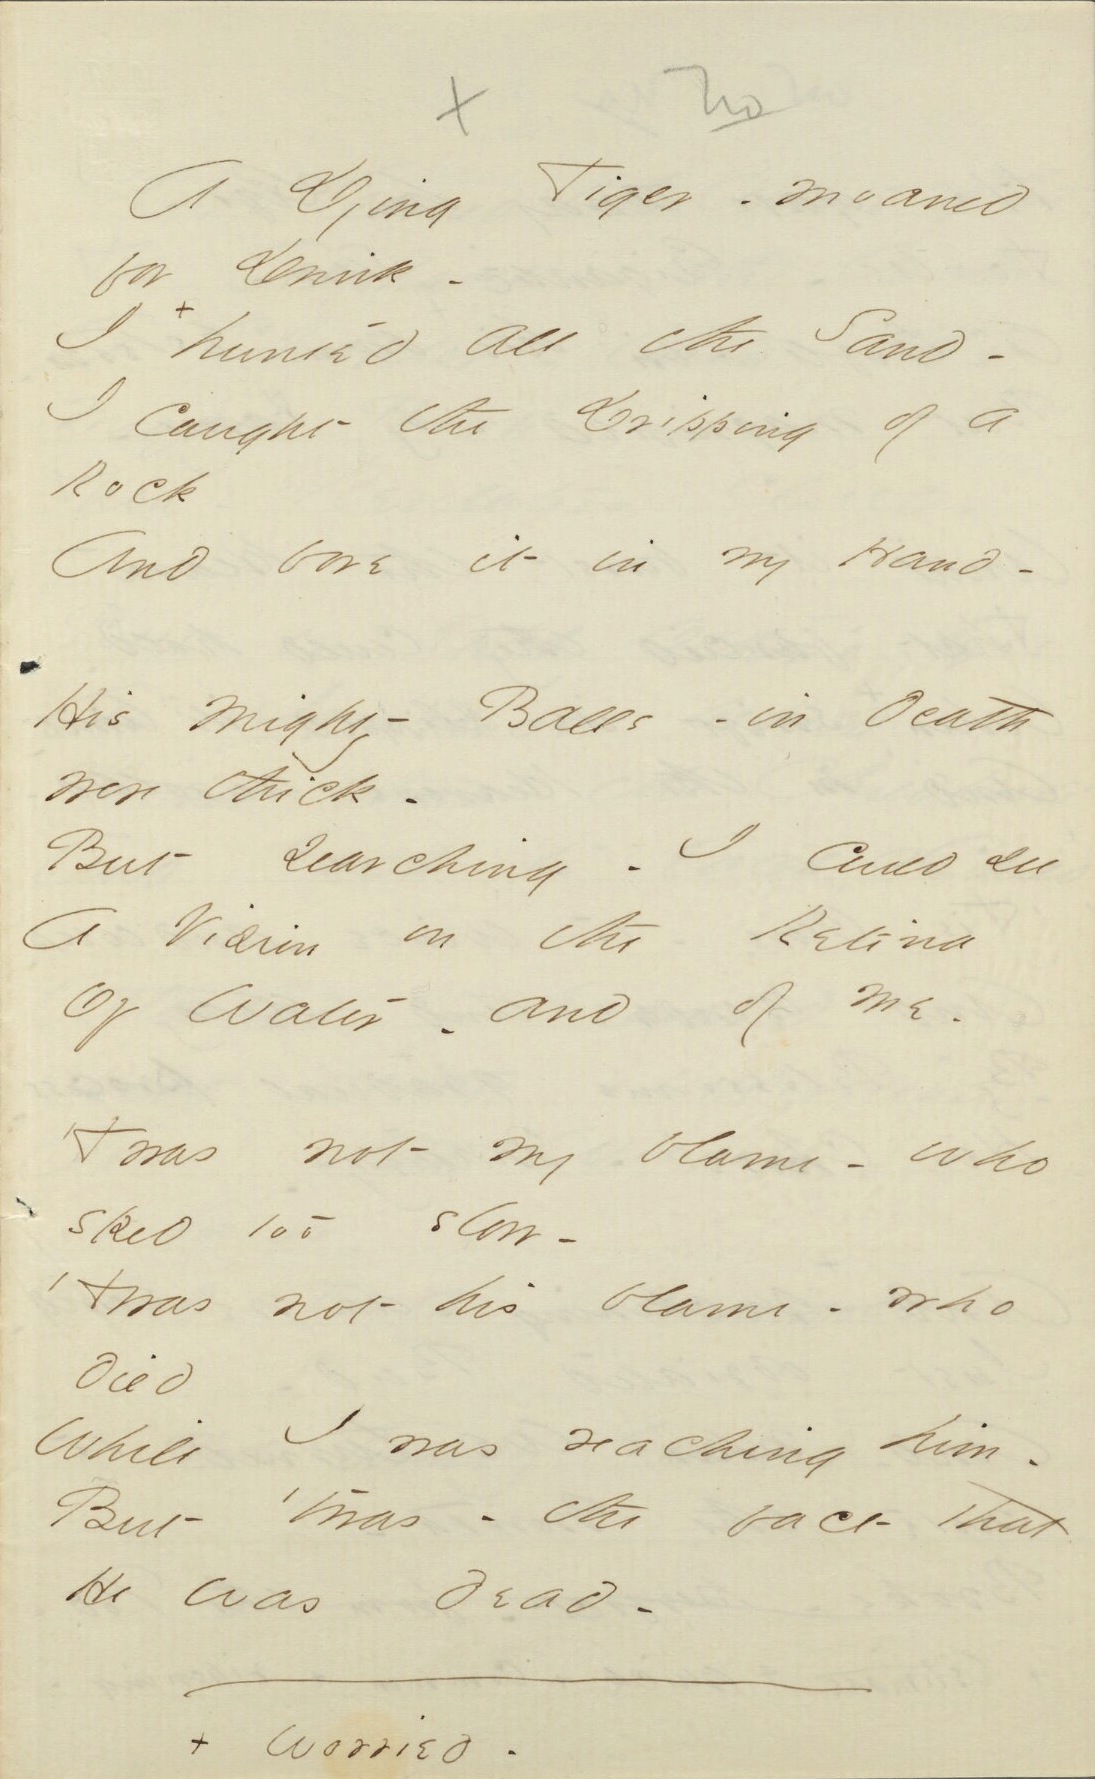 + No
A Dying Tiger - moaned
for Drink -
I + hunted all the Sand -
I caught the Dripping of a
Rock
And bore it in my Hand -
His mighty Balls - in death
were thick -
But searching - I could see
A Vision on the Retina
Of Water - and of me -
'Twas not my blame - who
sped too slow -
'Twas not his blame - who
died
While I was reaching him -
But 'twas - the fact that
He was dead -
+ worried -